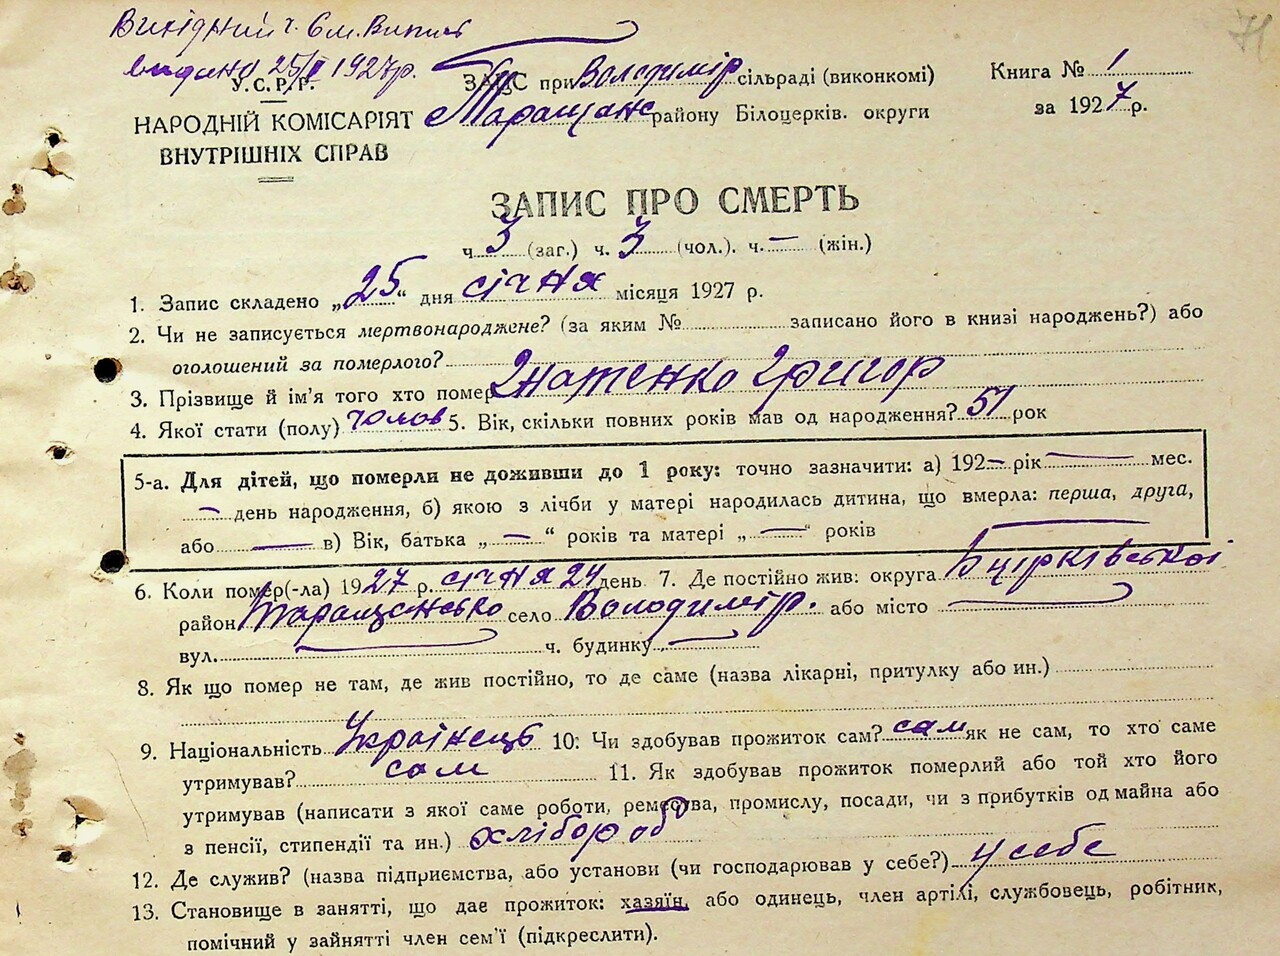 Вихідний ч. 6 м. Випис
видано 25/I 1927р.
71
У.С.Р.Р.
НАРОДНІЙ КОМІСАРІЯТ
ВНУТРІШНІХ СПРАВ
ЗАГС при Володимір сільраді (виконкомі)
Таращанс району Білоцерків. округи
Книга № 1
за 1927 р.
ЗАПИС ПРО СМЕРТЬ
ч 3 (заг.) ч. 3 (чол.). ч. — (жін.)
1. Запис складено „25“ дня січня місяця 1927 р.
2. Чи не записується мертвонароджене? (за яким № записано його в книзі народжень?) або
оголошений за померлого?
3. Прізвище й ім'я того хто помер Гнатенко Григор
4. Якої стати (полу) чолов 5. Вік, скільки повних років мав од народження? 51 рок
5-а. Для дітей, що померли не доживши до 1 року: точно зазначити: а) 192— рік — мес.
— день народження, б) якою з лічби у матері народилась дитина, що вмерла: перша, друга,
або — в) Вік, батька „ — “ років та матері „ — “ років
6. Коли помер(-ла) 1927 р. січня 24 день 7. Де постійно жив: округа Бцірківської
район Таращенсько село Володимір. або місто —
вул. — ч. будинку —
8. Як що помер не там, де жив постійно, то де саме (назва лікарні, притулку або ин.)
9. Національність Українець 10: Чи здобував прожиток сам? сам як не сам, то хто саме
утримував? сам 11. Як здобував прожиток померлий або той хто його
утримував (написати з якої саме роботи, ремества, промислу, посади, чи з прибутків од майна або
з пенсії, стипендії та ин.) хлібороб
12. Де служив? (назва підприємства, або установи (чи господарював у себе?) у себе
13. Становище в занятті, що дає прожиток: хазяїн, або одинець, член артілі, службовець, робітник,
помічний у зайнятті член сем'ї (підкреслити).